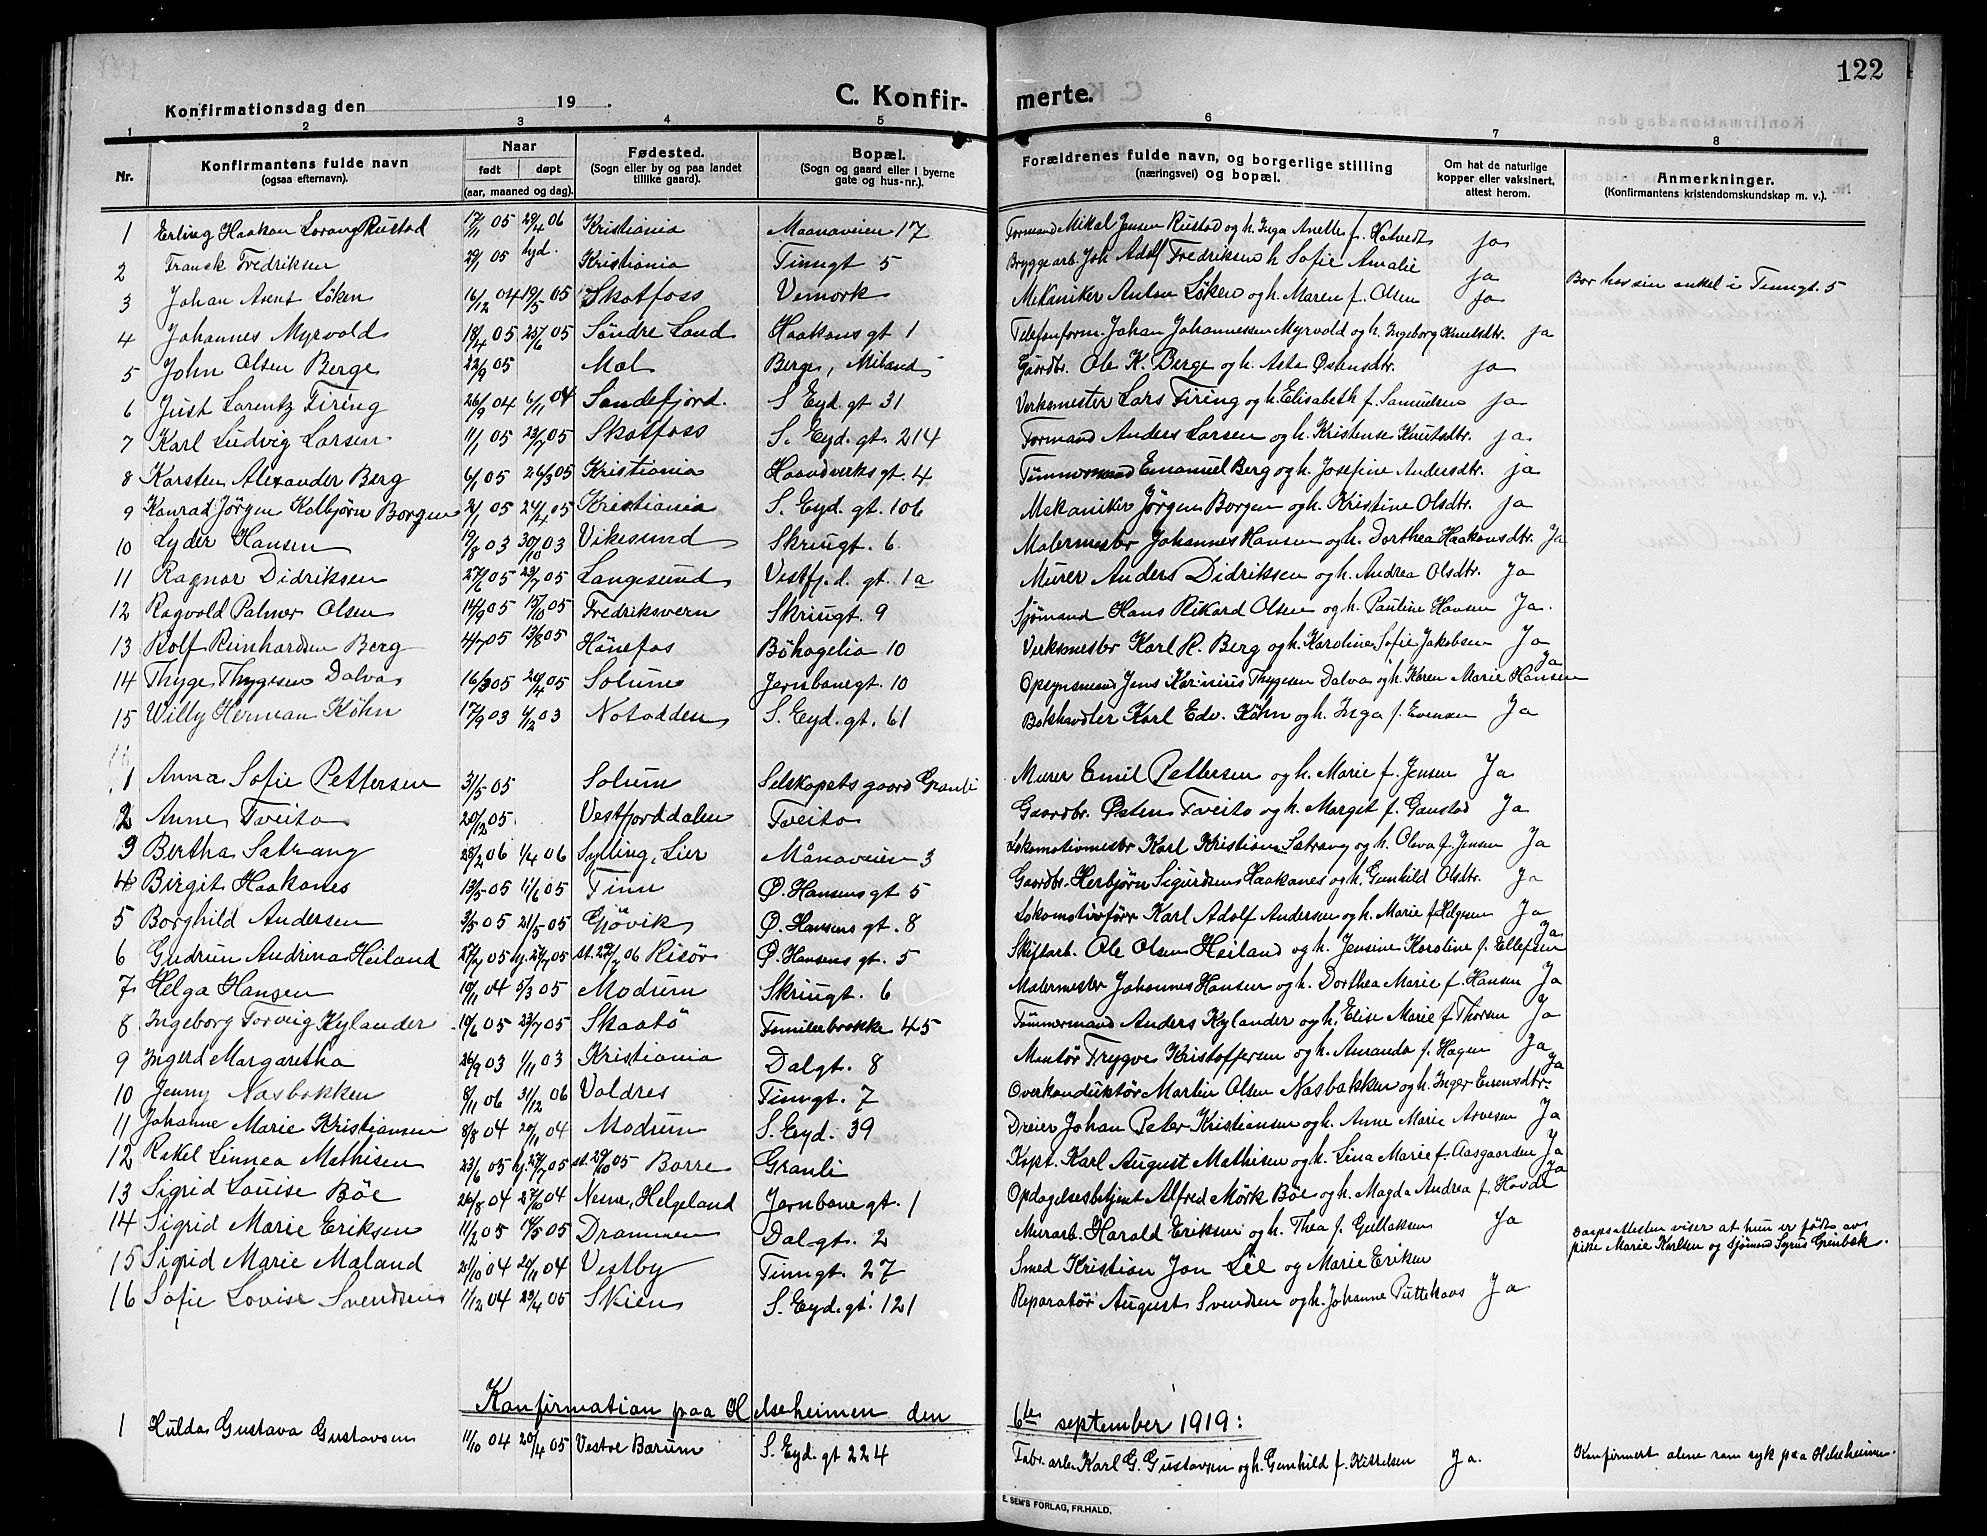 122
Konfirmationsdag den 19 .
C. Konfir- merte.
1 2 3 4 5 6 7 8
Nr.
Konfirmantens fulde navn
(ogsaa efternavn).
Naar
født døpt
(aar, maaned og dag).
Fødested.
(Sogn eller by og paa landet
tillike gaard).
Bopæl.
(Sogn og gaard eller i byerne
gate og hus-nr.).
Forældrenes fulde navn, og borgerlige stilling
(næringsvei) og bopæl.
Om hat de naturlige
kopper eller vaksinert,
attest herom.
Anmerkninger.
(Konfirmantens kristendomskundskap m. v.).
1 Erling Haakon Lorang Rustad 17/11 05 29/4 06 Kristiania Maanaveien 17 Formand Mikal Jensen Rustad og h. Inga Anette f. Hatvedt ja
2 Franck Fredriksen 29/1 05 hyd. Kristiania Tinngt 5 Bryggearb. Joh Adolf Fredriksen h Sofie Amalie ja Bor hos sin onkel i Tinngt. 5
3 Johan Arent Løken 16/12 04 19/5 05 Skotfoss Vemork Mekaniker Anton Løken og h. Maren f. Olsen ja
4 Johannes Myrvold 18/4 05 25/6 05 Søndre Land Haakons gt 1 Telefonform. Johan Johannessen Myrvold og h. Ingeborg Knutsdtr. ja
5 John Olsen Berge 22/9 05 Mæl Berge, Miland Gaardbr. Ole K. Berge og h. Aste Østensdtr. ja
6 Just Lorentz Firing 26/9 04 6/11 04 Sandefjord. S Eyd. gt 31 Verksmester Lars Firing og h. Elisabeth f. Samuelsen ja
7 Karl Ludvig Larsen 11/1 05 23/7 05 Skotfoss S. Eyd. gt. 214 Formand Anders Larsen og h. Kristense Knutsdtr. ja
8 Karsten Alexander Berg 6/1 05 26/3 05 Kristiania Haandverksgt. 4 Tømmermand Emanuel Berg og h. Josefine Andersdtr. ja
9 Konrad Jørgen Kolbjørn Borgen 2/1 05 24/4 05 Kristiania S. Eyd. gt. 106 Mekaniker Jørgen Borgen og h. Kristine Olsdtr. ja
10 Lyder Hansen 19/8 03 30/10 03 Vikesund Skriugt. 6 Malermester Johannes Hansen og h. Dorthea Haakonsdtr. Ja
11 Ragnar Didriksen 27/6 05 23/7 05 Langesund Vestfj. d. gt. 1a Murer Anders Didriksen og h. Andrea Olsdtr. Ja
12 Ragvold Palmer Olsen 14/9 05 15/10 05 Fredriksvern Skriugt. 9 Sjømand Hans Rikard Olsen og h. Pauline Hansen Ja.
13 Rolf Reinhardsen Berg 4/7 05 13/8 05 Hønefos Bøhagelia 10 Verksmester Karl R. Berg og h. Karoline Sofie Jakobsen Ja
14 Thyge Thygesen Dalva 16/3 05 20/4 05 Solum Jernbanegt. 10 Opsynsmand Jens Karinius Thygesen Dalva og h. Karen Marie Hansen Ja
15 Willy Herman Køhn 17/9 03 6/12 03 Notodden S. Eyd. gt. 61 Bokhandler Karl Edv. Køhn og h. Inga f. Evensen Ja
1 Anna Sofie Pettersen 31/5 05 Solum Selskapets gaard Granli Murer Emil Pettersen og h. Marie f. Jensen Ja
2 Anne Tveito 20/12 05 Vestfjorddalen Tveito Gaardbr. Østen Tveito og h. Margit f. Gaustad Ja
3 Bertha Satrang 28/2 06 1/4 06 Sylling, Lier Månaveien 3 Lokomotivmester Karl Kristian Satrang og h. Oleva f. Jensen Ja
4 Birgit Haakanes 13/5 05 11/6 05 Tinn Ø. Hansens gt 5 Gaardbr. Herbjørn Sigurdsen Haakanes og h. Gunhild Olsdtr. Ja
5 Borghild Andersen 3/5 05 21/5 05 Gjøvik Ø. Hansens gt. 8 Lokomotivfører Karl Adolf Andersen og h. Marie f. Helgesen Ja
6 Gudrun Andrina Heiland 27/7 05 hj. 27/7 05 st. 22/7 06 Risør Ø. Hansens gt. 5 Skiftarb. Ole Olsen Heiland og h. Jensine Karoline f. Ellefsen Ja
7 Helga Hansen 19/11 04 5/3 05 Modum Skriugt. 6 Malermester Johannes Hansen og h. Dorthea Marie f. Hansen Ja
8 Ingeborg Torvig Kylander 19/6 05 23/7 05 Skaatø Familiebrakke 45 Tømmermand Anders Kylander og h. Elise Marie f. Thorsen Ja
9 Ingerd Margaretha 26/9 03 1/11 03 Kristiania Dalgt. 8 Montør Trygve Kristoffersen og h. Amanda f. Hagen Ja
10 Jenny Nasbakken 8/11 06 31/12 06 Valdres Tinngt. 7 Overkonduktør Martin Olsen Nasbakken og h. Inger Evensdtr. Ja
11 Johanne Marie Kristiansen 8/8 04 20/11 04 Modum S. Eyd. 39 Dreier Johan Peter Kristiansen og h. Anne Marie Arvesen Ja
12 Rakel Linnea Mathisen 23/6 05 hj. 27/7 05 st. 29/10 05 Borre Granli Kopt. Karl August Mathisen og h. Lina Marie f. Aasgaarden Ja
13 Sigrid Louise Bøe 26/8 04 27/10 04 Nesne, Helgeland Jernbane gt. 1 Opdagelsesbetjent Alfred Mørk Bøe og h. Magda Andrea f. Hovde Ja
14 Sigrid Marie Eriksen 11/2 05 14/5 05 Drammen Dalgt. 2 Murarb. Harald Eriksen og h. Thea f. Gulbaksen Ja Daapsattesten viser at hun er født av
pike Marie Karlsen og sjømand Syrus Grinbæk.
15 Sigrid Marie Maland 21/10 04 20/11 04 Vestby Tinngt. 27 Smed Kristian Jon Lie og Marie Eriksen
16 Sofie Lovise Svendsen 1/12 04 29/4 05 Skien S. Eyd. gt. 121 Reparatør August Svendsen og h. Johanne Puttekaas Ja
Konfirmation paa Helseheimen den 6te september 1919:
1 Hulda Gustava Gustavsen 11/10 04 20/4 05 Vestre Bærum S. Eyd. gt 224 Fabr. arb. Karl G. Gustavsen og h. Gunhild f. Kittelsen Ja. Konfirmert alene som syk paa Helseheimen.
E. SEM'S FORLAG, FR.HALD.